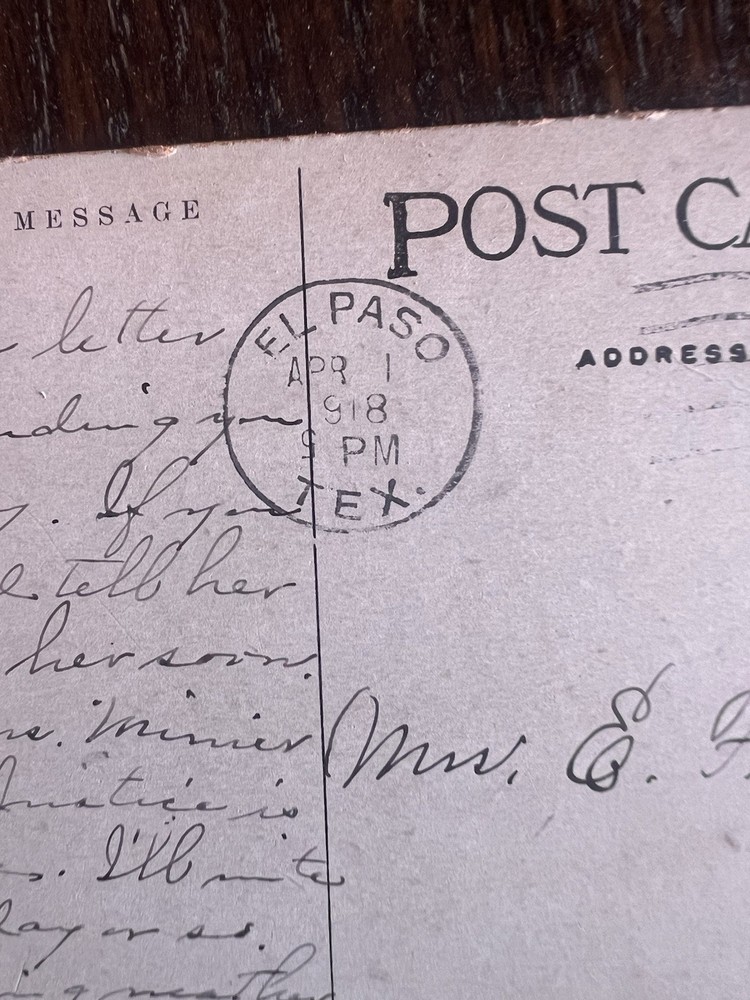 MESSAGE
POST CA
EL PASO
APR 1
918
PM
TEX.
ADDRESS
letter
nding you
. If you
tell her
her soon.
Mrs. E.
is
. I'll write
day or so.